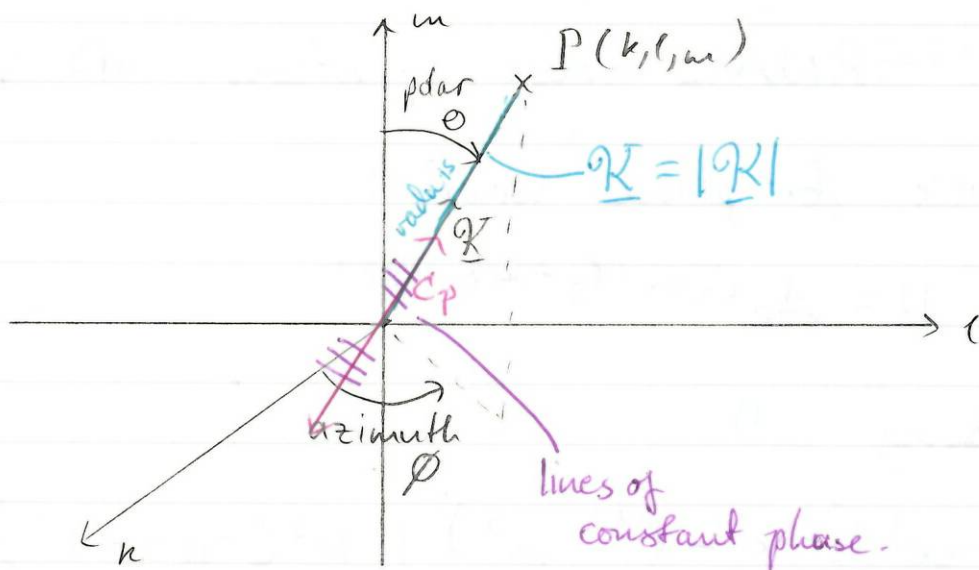 m
P(k,l,m)
polar
θ
radius
K = |K|
K
Cp
l
azimuth
φ
k
lines of
constant phase.